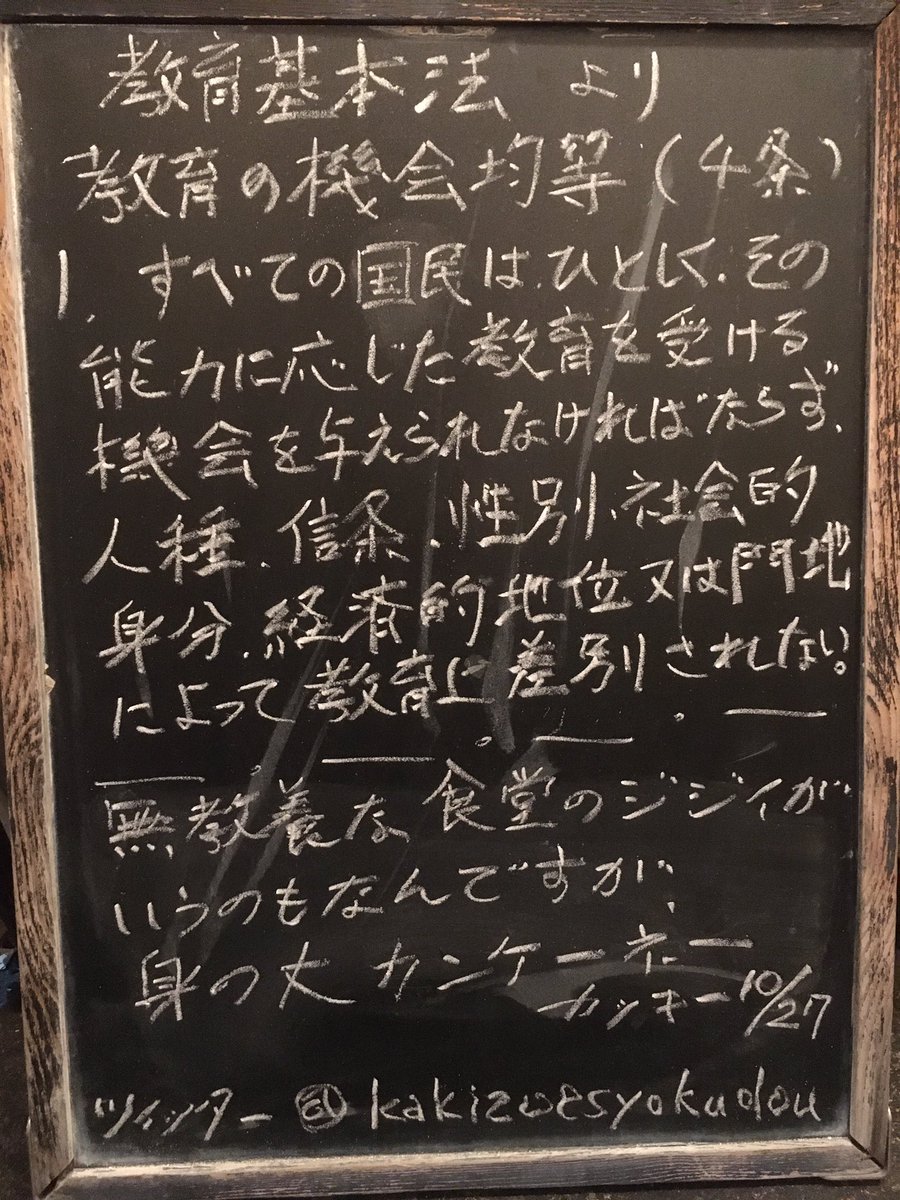 教育基本法 より
教育の機会均等(4条)
1. すべての国民は、ひとしく、その
能力に応じた教育を受ける
機会を与えられなければならず、
人種、信条、性別、社会的
身分、経済的地位又は門地
によって教育上差別されない。
無教養な食堂のジジイが
いうのもなんですが、
身の丈 カンケーネー
カッキー10/27
ツイッター @kakizoesyokudou